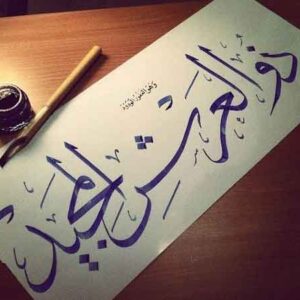 وهو الغفور الودود
ذو العرش المجيد